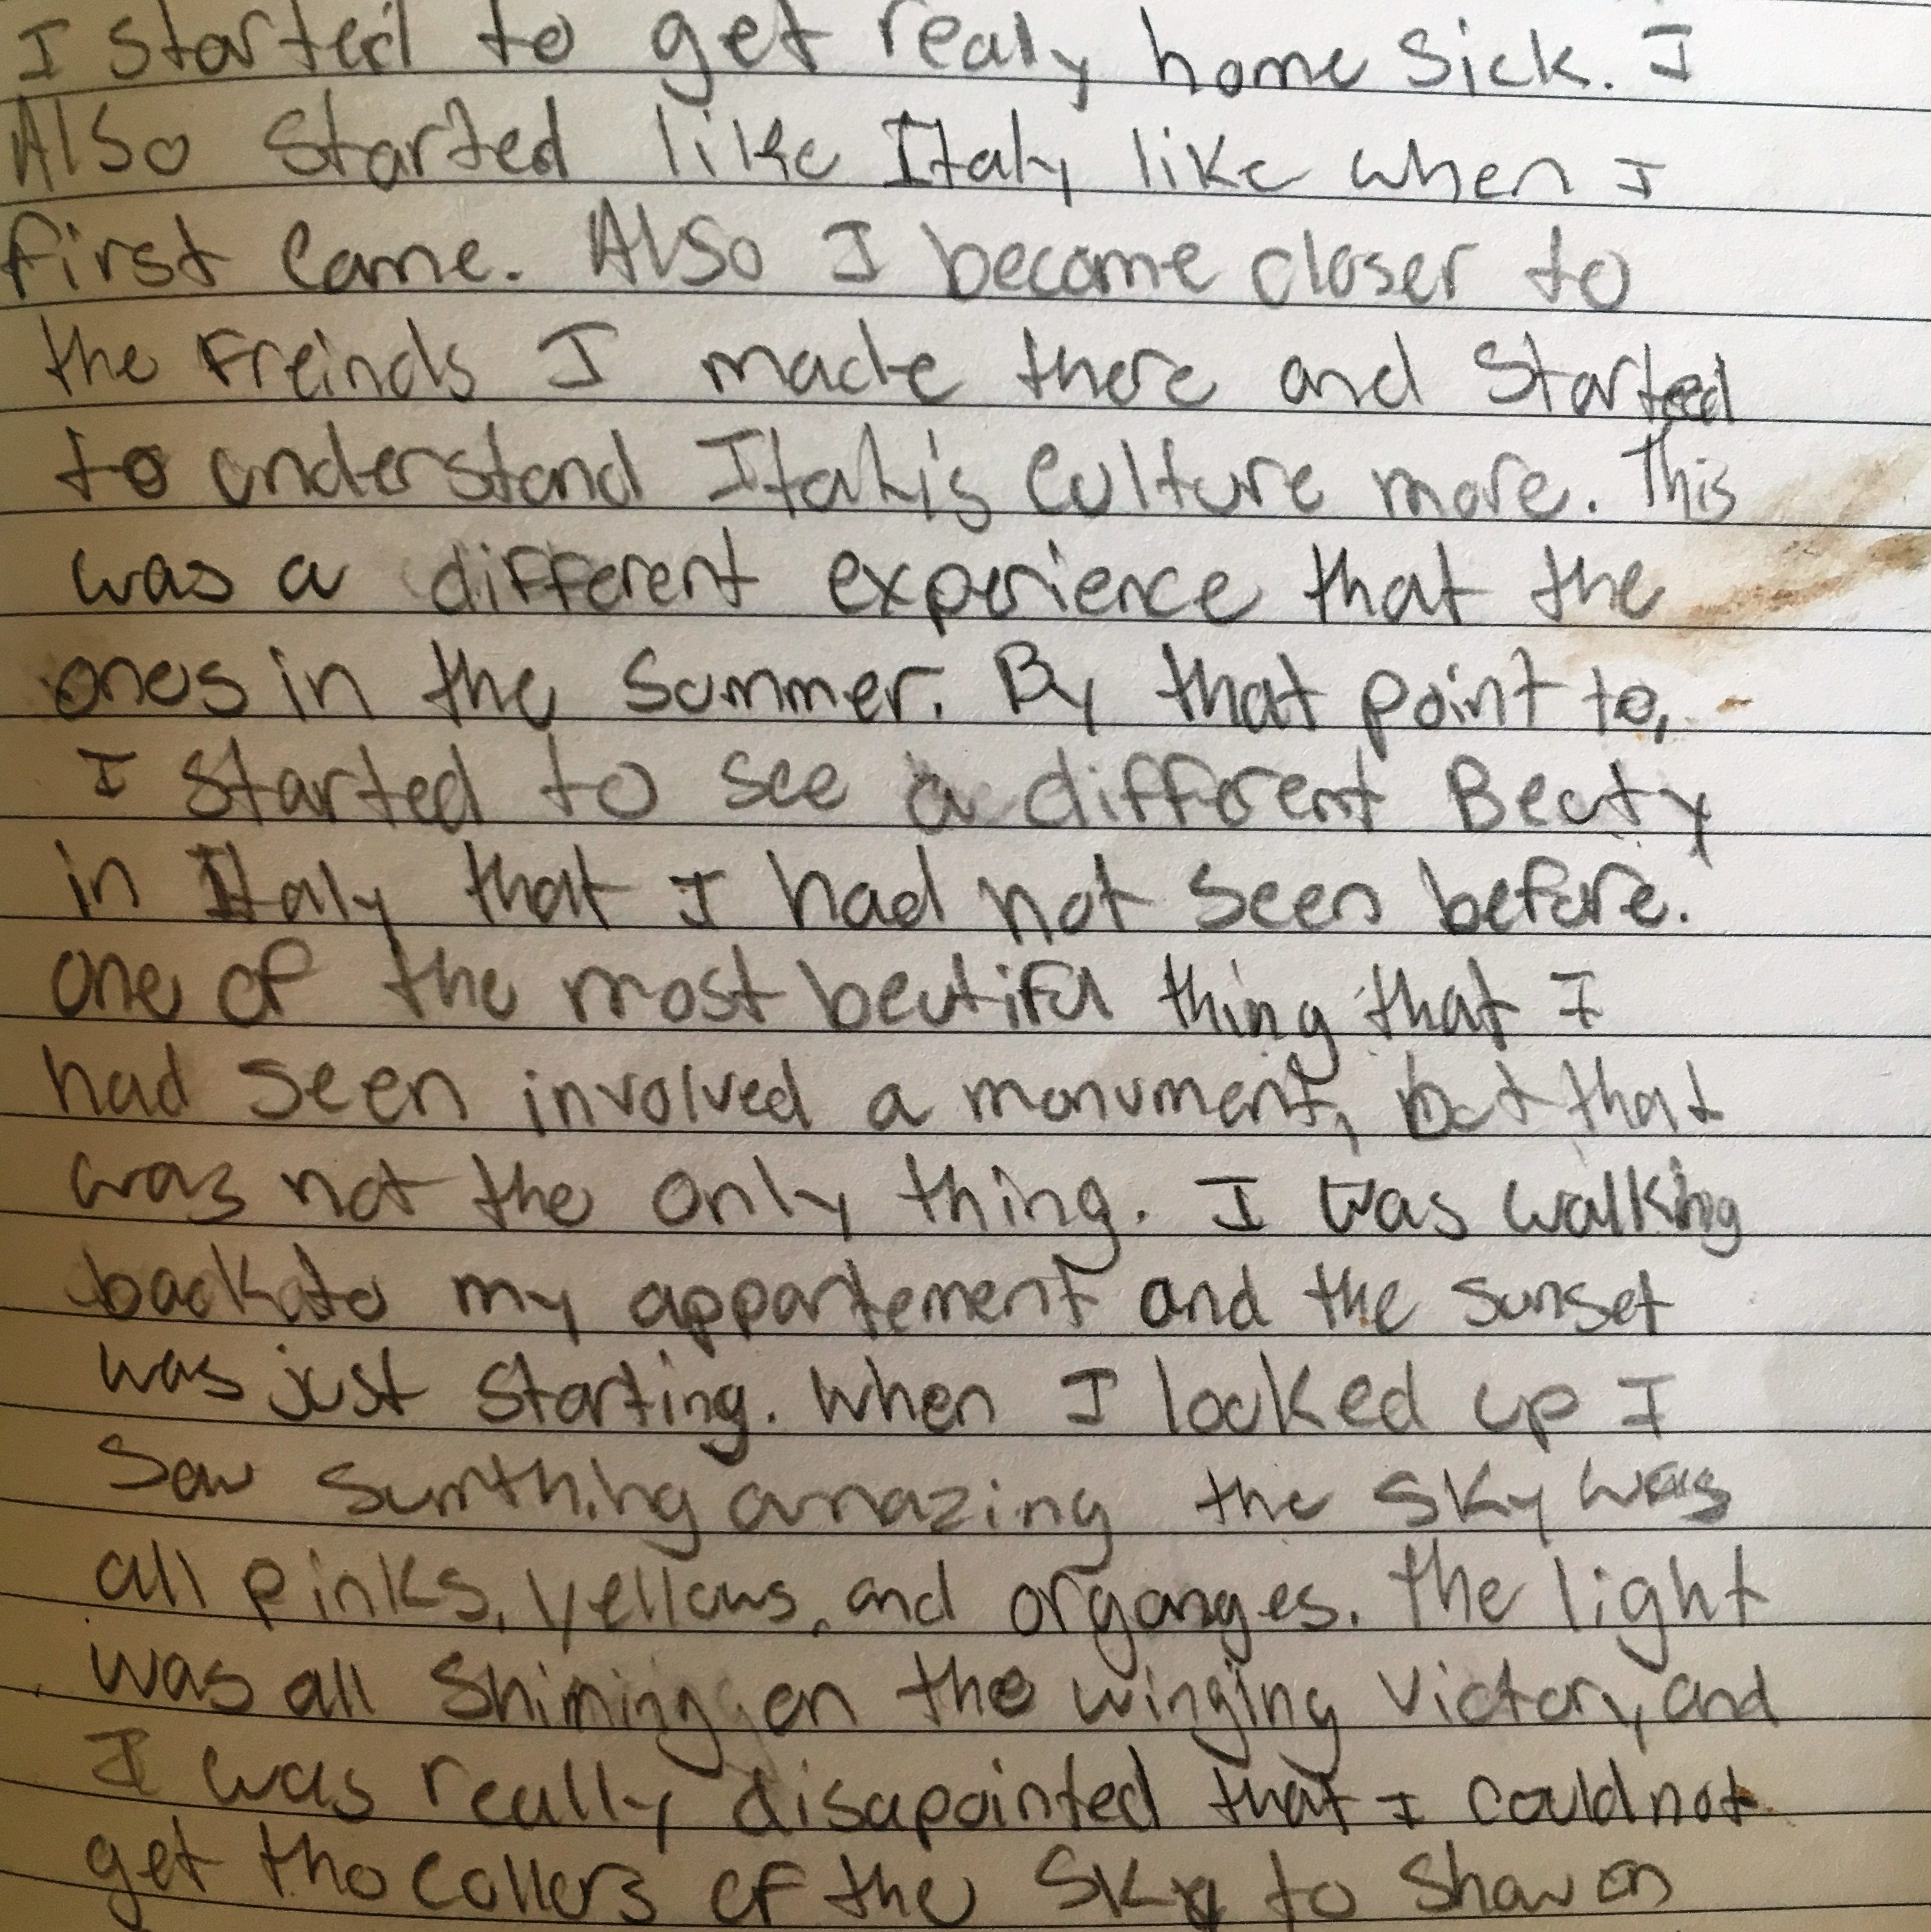 I started to get realy home sick. I
Also started like Italy like when I
first came. Also I become closer to
the Freinds I made there and started
to understand Italy's culture more. This
was a different experience that the
ones in the summer. By that point to,
I started to see a different Beuty
in Italy that I had not seen before.
one of the most beutiful thing that I
had seen involved a monument, but that
was not the only thing. I was walking
back to my appartement and the sunset
was just starting. When I looked up I
saw sumthing amazing the sky was
all pinks, yellows, and organges. the light
was all shining on the winging victory, and
I was really disapointed that I could not
get the collers of the sky to show on